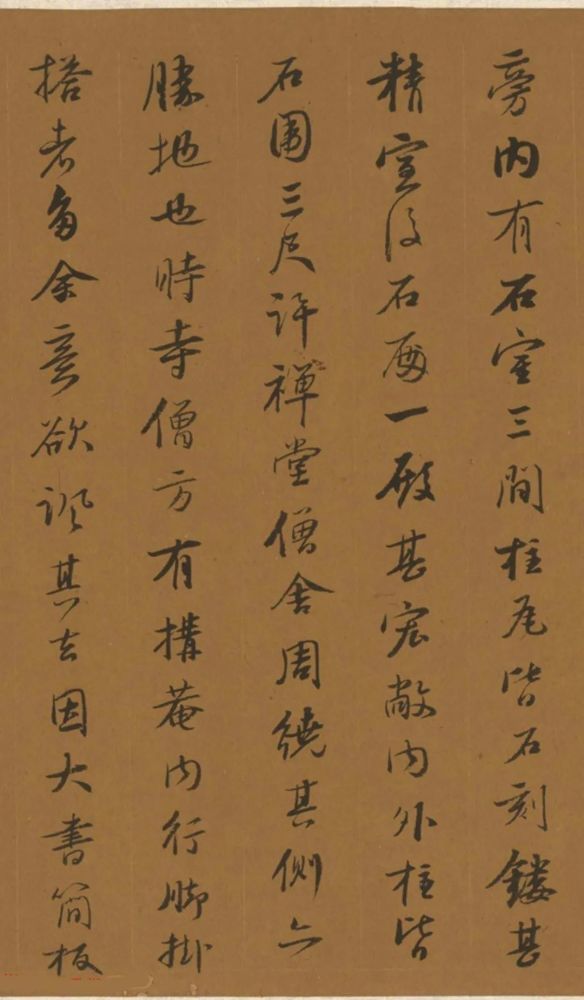 旁内有石室三間柱瓦皆石刻鏤甚
精室後石面一殿甚宏敞内外柱皆
石圍三尺許禪堂僧舍周繞其側亦
勝地也時寺僧方有搆菴内行脚掛
搭者多余意欲諷其去因大書簡板